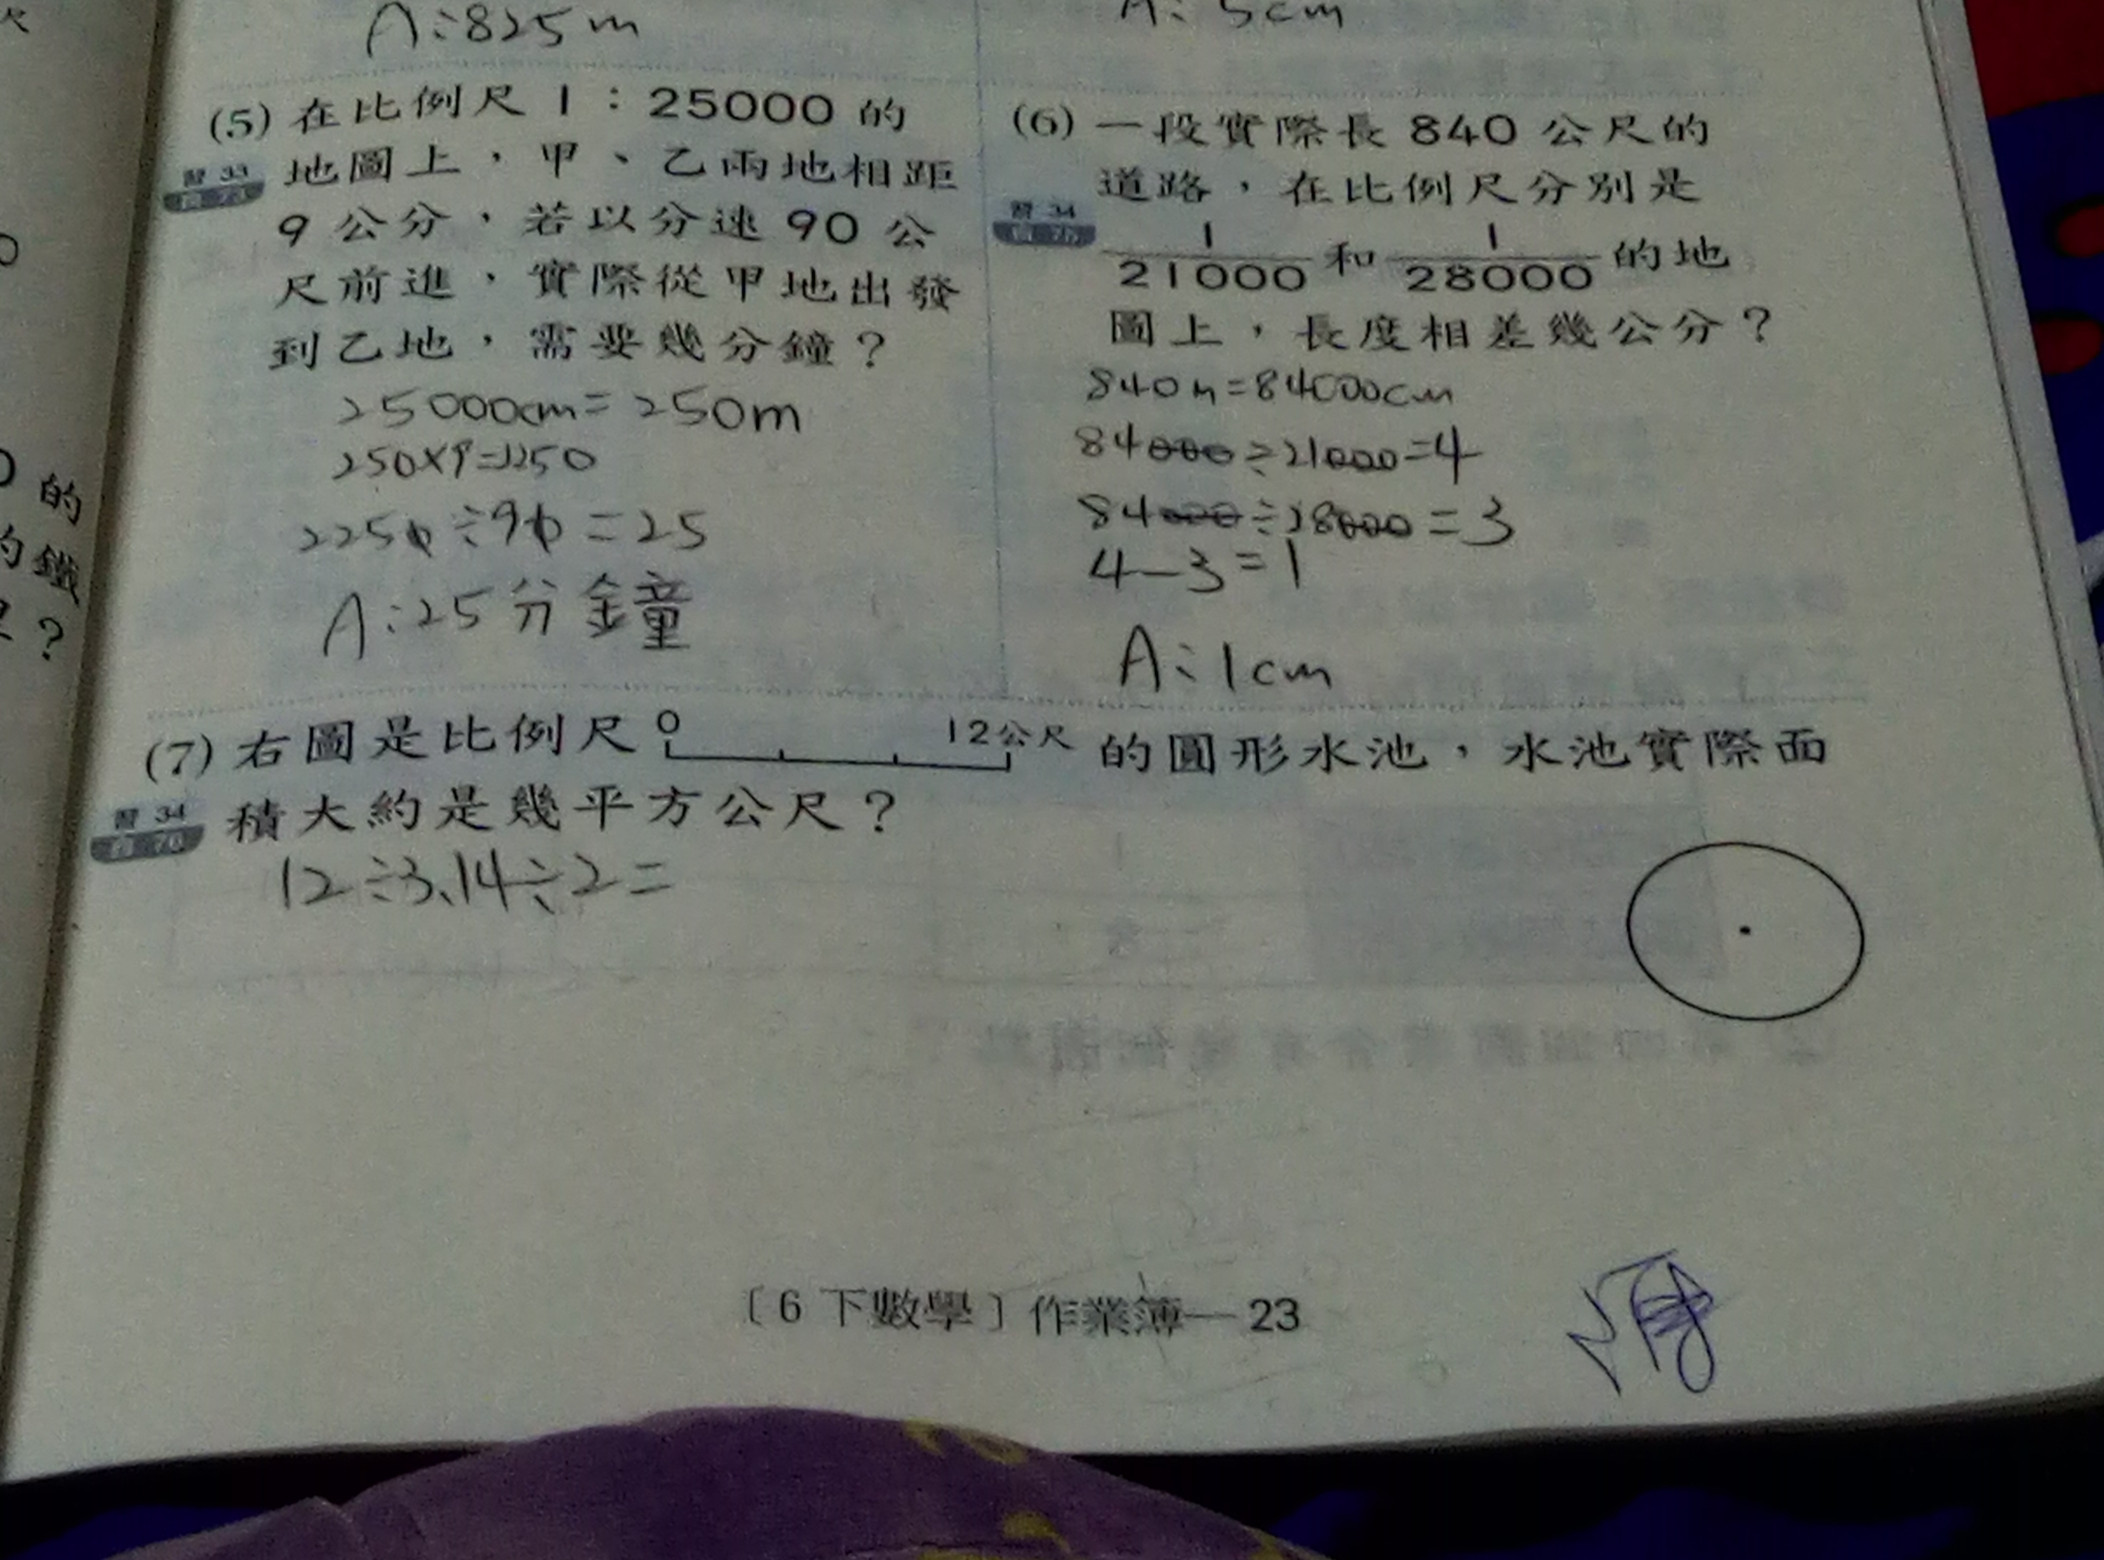 A:825m
A: 5cm
(5) 在比例尺 1：25000 的
地圖上，甲、乙兩地相距
習 33
9 公分，若以分速 90 公
尺前進，實際從甲地出發
到乙地，需要幾分鐘？
25000cm=250m
250×9=2250
2250÷90=25
A:25分鐘
(6) 一段實際長 840 公尺的
道路，在比例尺分別是
習 34
1/21000 和 1/28000 的地
圖上，長度相差幾公分？
840m=84000cm
84000÷21000=4
84000÷28000=3
4-3=1
A:1cm
的
的鐵
？
(7) 右圖是比例尺 0 12公尺 的圓形水池，水池實際面
習 34
積大約是幾平方公尺？
12÷3.14÷2=
〔6 下數學〕作業簿—23